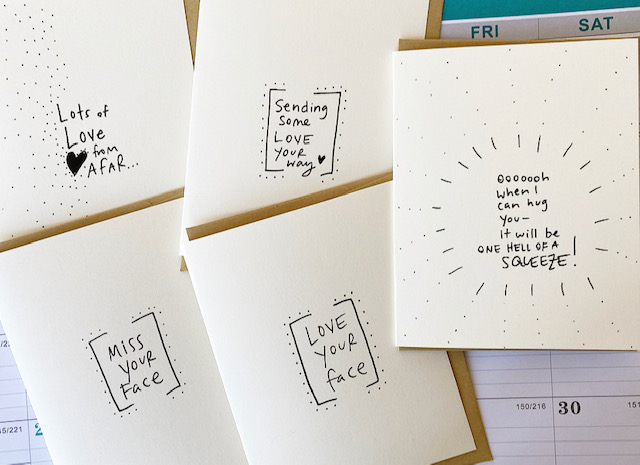 FRI
SAT
Lots of
Love
from
AFAR...
Sending
Some
LOVE
YOUR
way
OOOOOOh
when I
can hug
you—
it will be
ONE HELL OF A
SQUEEZE!
MISS
YOUR
Face
LOVE
YOUR
face
150/216
30